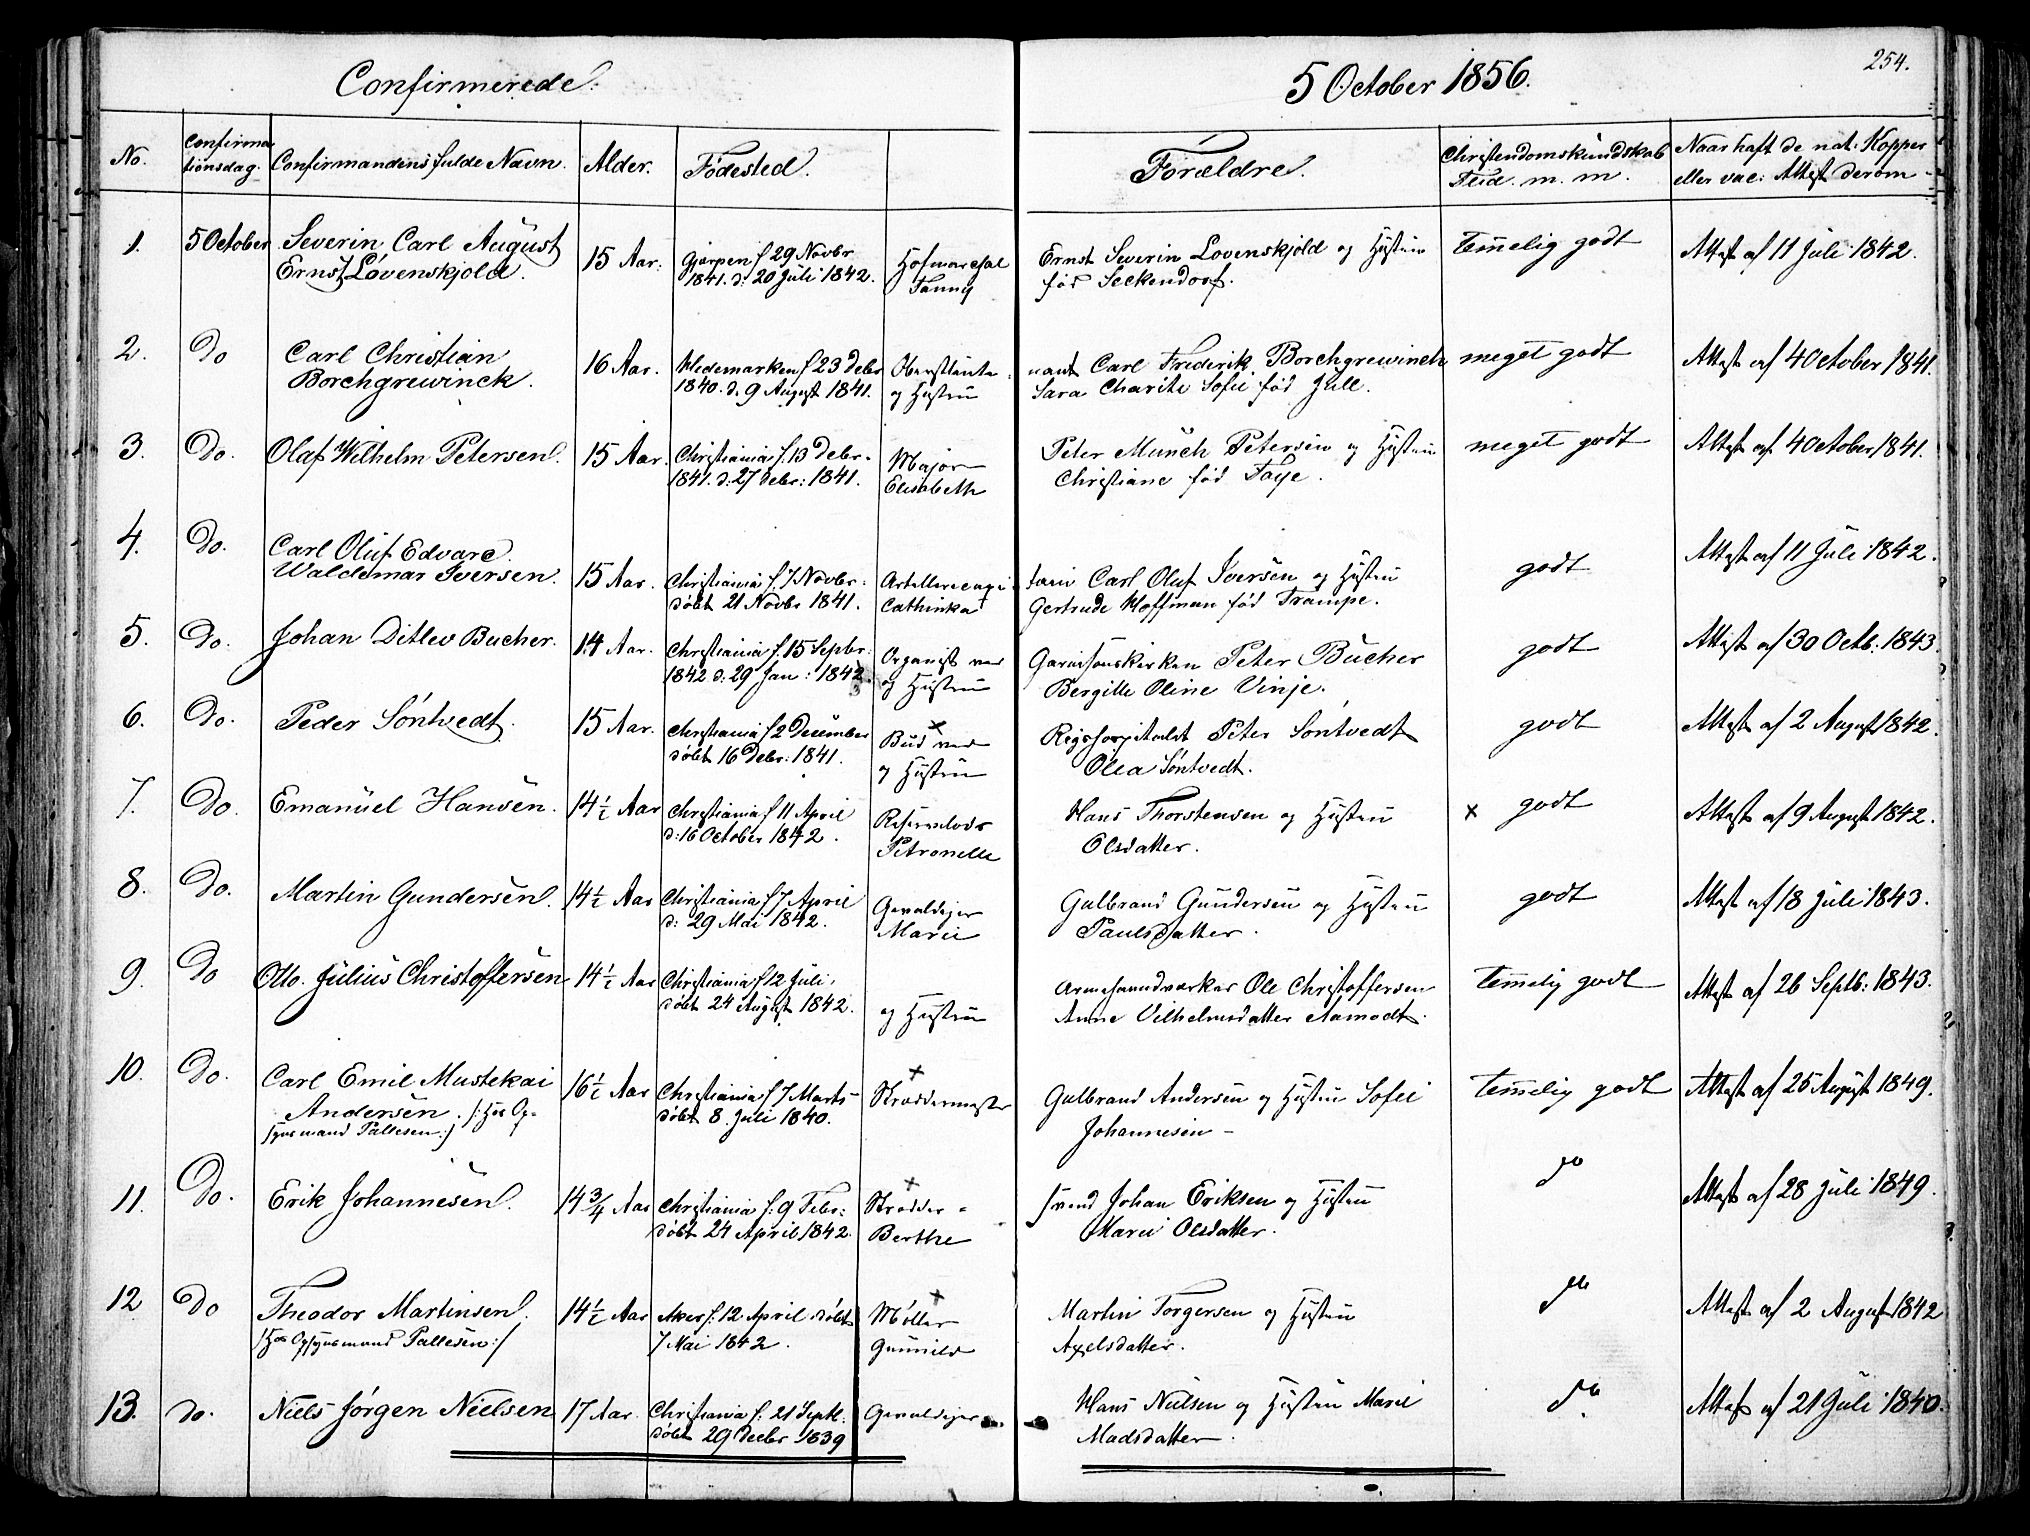 Confirmerede.
5 October 1856.
254.
No.
Confirma
tionsdag.
Confirmandens fulde Navn.
Alder.
Fødested.
Forældre.
Christendomskundskab
Flid. m. m.
Naar haft de nat: Kopper
eller vac: Attest derom
1. 5 October Severin Carl August 15 Aar. Gjerpen f 29 Novbr Hofmarchal Ernst Severin Lovenskjold og Hustru temmelig godt Attest af 11 Juli 1842.
Ernst Løvenskjold. 1841. d: 20 Juli 1842. Fanny før Seckendorf.
2. Do Carl Christian 16 Aar. Hedemarken f 23 Debr Oberstlieute nant Carl Frederik Borchgrewinck meget godt Attest af 4 October 1841.
Borchgrewinck. 1840. d. 9 August 1841. og Hustru Sara Charite Sofie fød Juell.
3. Do. Olaf Wilhelm Petersen. 15 Aar. Christiania f. 13 Debr. Major Peter Münch Petersen og Hustru meget godt Attest af 4 October 1841.
1841. d: 27 Debr: 1841. Elisabeth Christiane fød Faye.
4. Do. Carl Oluf Edvard 15 Aar. Christiania f. 7 Novbr: Artellericapi tain Carl Oluf Iversen og Hustru godt Attest af 11 Juli 1842.
Waldemar Iversen. døbt 21 Novbr 1841. Cathinka Gertrude Hoffman fød Trampe.
5. Do. Johan Ditlev Bucher. 14 Aar. Christiania f. 15 Septbr: Organist ved Garnisonskirken Peter Bücher godt Attest af 30 Octb. 1843.
1842 d: 29 Jan: 1843. og Hustru Bergitte Oline Vinje.
6. Do. Peder Søntvedt. 15 Aar. Christiania f 2 December Bud ved Rigshospitalet Peter Søntvedt godt Attest af 2 August 1842.
døbt 16 Debr: 1841. og Hustru Olea Søntvedt.
7. Do. Emanuel Hansen. 14 1/2 Aar Christiania f 11 April Hans Thorstensen og Hustru x godt Attest af 9 August 1842.
d: 16 October 1842. Petronelle Olsdatter.
8. Do. Martin Gundersen. 14 1/2 Aar Christiania f 7 April Gevaldiger Gulbrand Gundersen og Hustru godt Attest af 18 Juli 1843.
d: 29 Mai 1842. Marie Paulsdatter.
9. Do Otto Julius Christoffersen 14 1/2 Aar Christiania f 12 Juli Ole Christoffersen temmelig godt Attest af 26 Septb: 1843.
døbt 24 August 1842. og Hustru Anne Vilhelmsdatter Aamodt.
10. Do. Carl Emil Mustekai 16 1/2 Aar Christiania f. 7 Marts Skreddermester Gulbrand Andersen og Hustru Sofie temmelig godt Attest af 25 August 1849.
Andersen. /: Hos Op- døbt 8 Juli 1840. Johannesen
synsmand Pallesen :/
11. Do. Erik Johannesen. 14 3/4 Aar Christiania f. 9 Febr: Skrædder- svend Johan Eriksen og Hustru do Attest af 28 Juli 1849.
døbt 24 April 1842. Berthe Marie Olsdatter.
12 Do Theodor Martinsen. 14 1/2 Aar Aker f: 12 April døbt Møller Martin Torgersen og Hustru do Attest af 2 August 1842
/: Hos Opsynsmand Pallesen :/ 7 Mai 1842. Gunnild Axelsdatter.
13. do. Niels Jørgen Nielsen 17 Aar. Christiania f. 21 Septb. Gevaldiger Hans Nielsen og Hustru Marie do Attest af 21 Juli 1840.
døbt 29 Decbr 1839 Madsdatter.